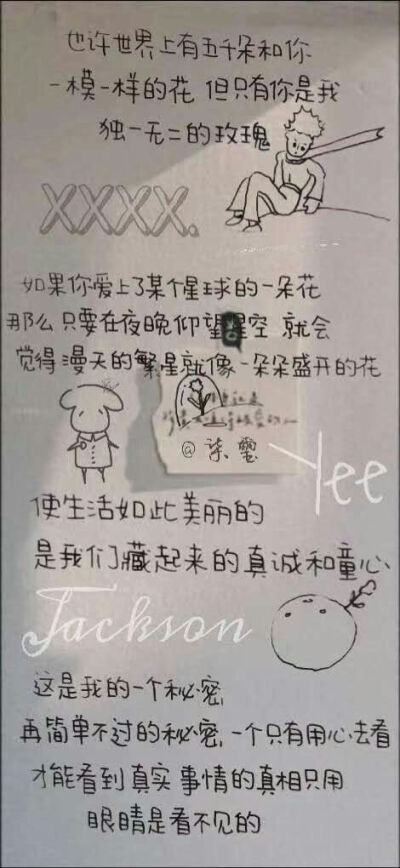 也许世界上有五千朵和你
一模一样的花 但只有你是我
独一无二的玫瑰
XXXX.
如果你爱上了某个星球的一朵花
那么只要在夜晚仰望星空 就会
觉得漫天的繁星就像一朵朵盛开的花
@柒霭
Yee
使生活如此美丽的
是我们藏起来的真诚和童心
Jackson
这是我的一个秘密
再简单不过的秘密,一个只有用心去看
才能看到真实 事情的真相只用
眼睛是看不见的